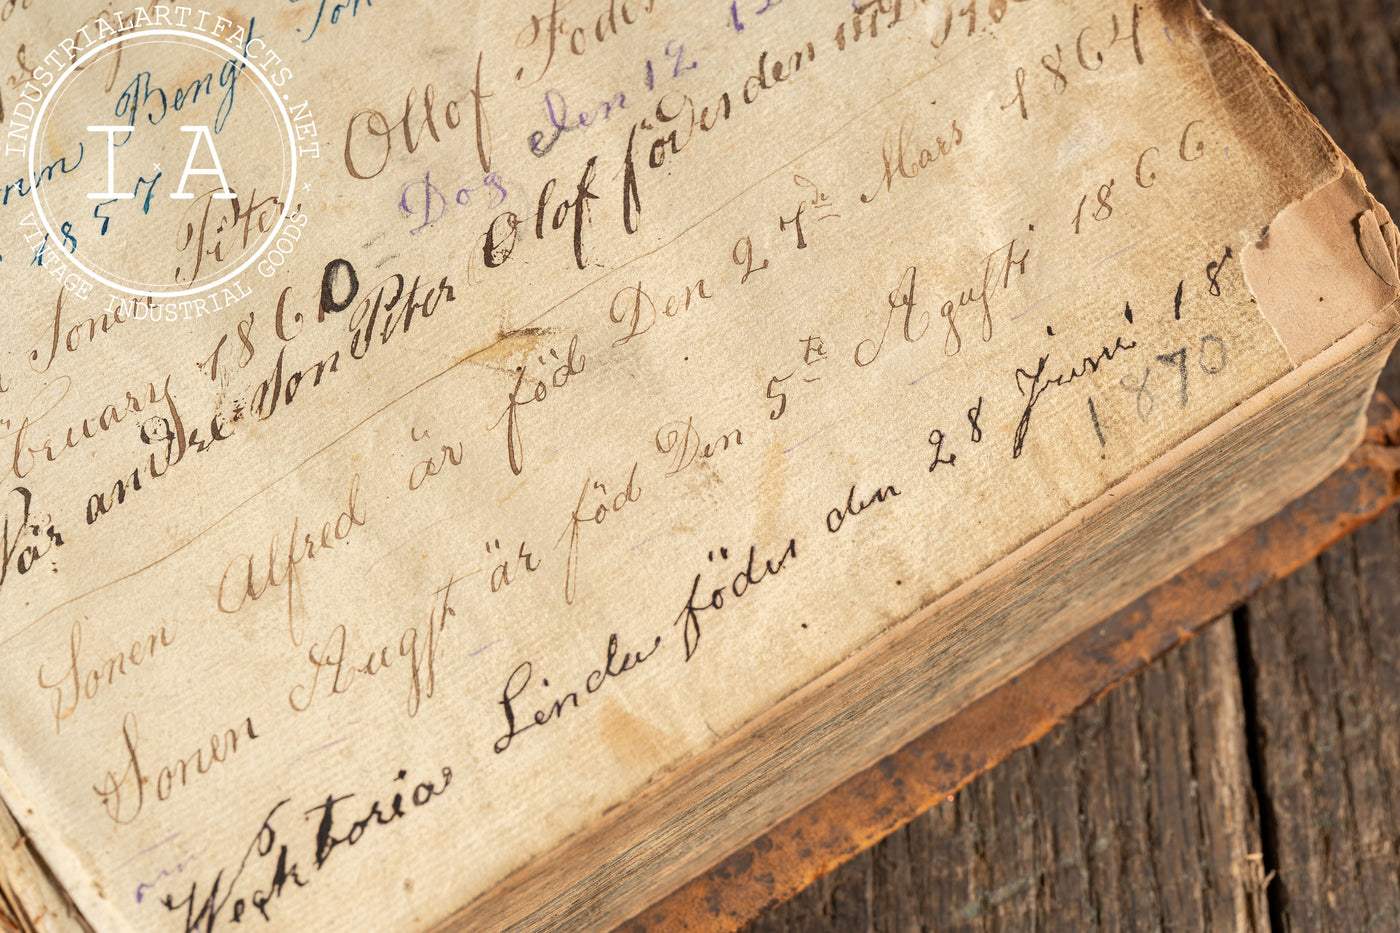 INDUSTRIALARTIFACTS.NET
I+A
VINTAGE INDUSTRIAL GOODS
Beng
1857
Ollof Föde
Sonen Piter
Dog den 12
February 1860
Vår andre Son Piter Olof föder den
Sonen Alfred är föd Den 27de Mars 1864
Sonen Augst är föd Den 5te Agusti 1866
Wecktoria Linda föder den 28 Juni 18
1870